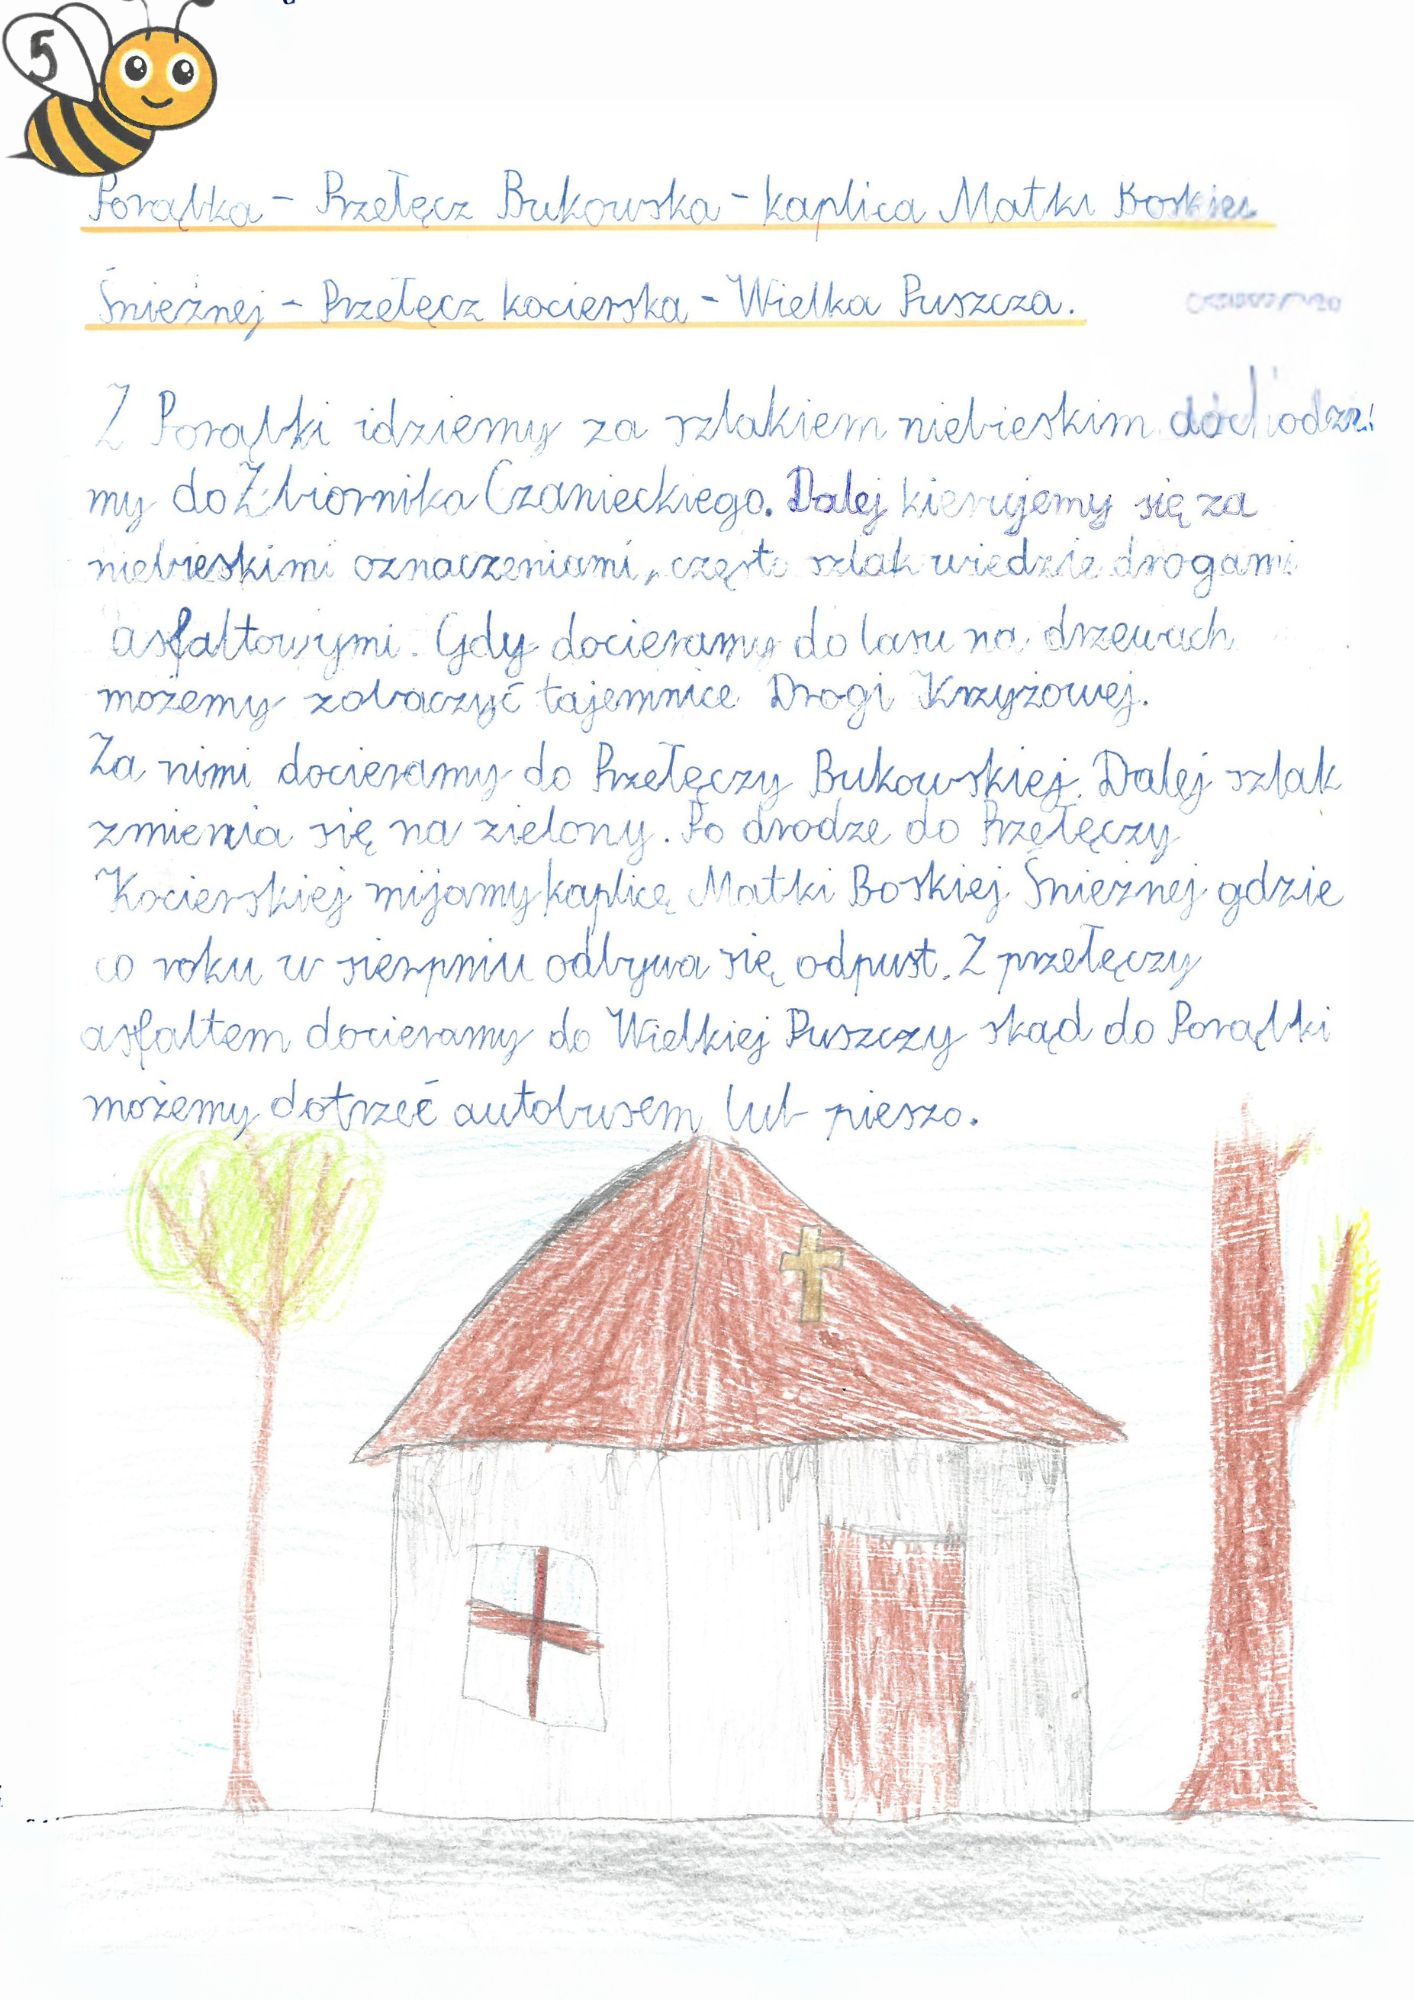 5
Porąbka - Przełęcz Bukowska - kaplica Matki Boskiej
Śnieżnej - Przełęcz kocierska - Wielka Puszcza.
Z Porąbki idziemy za szlakiem niebieskim dochodzi
my do Zbiornika Czanieckiego. Dalej kierujemy się za
niebieskimi oznaczeniami, często szlak wiedzie drogami
asfaltowymi. Gdy docieramy do lasu na drzewach
możemy zobaczyć tajemnice Drogi Krzyżowej.
Za nimi docieramy do Przełęczy Bukowskiej. Dalej szlak
zmienia się na zielony. Po drodze do Przełęczy
Kocierskiej mijamy kaplicę Matki Boskiej Śnieżnej gdzie
co roku w sierpniu odbywa się odpust. Z przełęczy
asfaltem docieramy do Wielkiej Puszczy skąd do Porąbki
możemy dotrzeć autobusem lub pieszo.